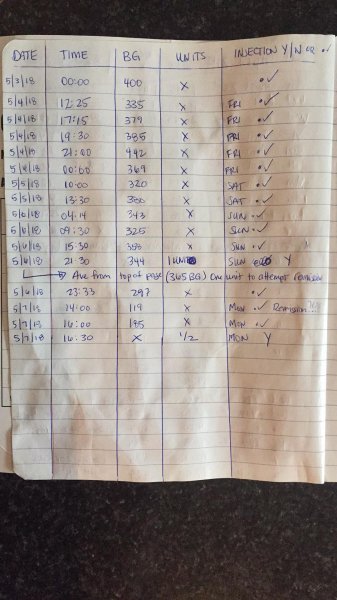 DATE TIME BG UNITS INJECTION Y/N OR ✓
5/3/18 00:00 400 X •✓
5/4/18 12:25 335 X FRI •✓
5/4/18 17:15 379 X FRI •✓
5/4/18 19:30 385 X FRI •✓
5/4/18 21:00 442 X FRI •✓
5/4/18 00:00 369 X FRI •✓
5/5/18 10:00 320 X SAT •✓
5/5/18 13:30 X SAT •✓
5/6/18 04:14 343 X SUN •✓
5/6/18 09:30 325 X SUN •✓
5/6/18 15:30 X SUN •✓
5/6/18 21:30 344 1 UNIT SUN Y
→ Ave from top of page (365 BG) One unit to attempt remission
5/6/18 23:33 297 X •✓
5/7/18 14:00 119 X MON •✓ Remission
5/7/18 16:00 185 X MON •✓
5/7/18 16:30 X 1/2 MON Y